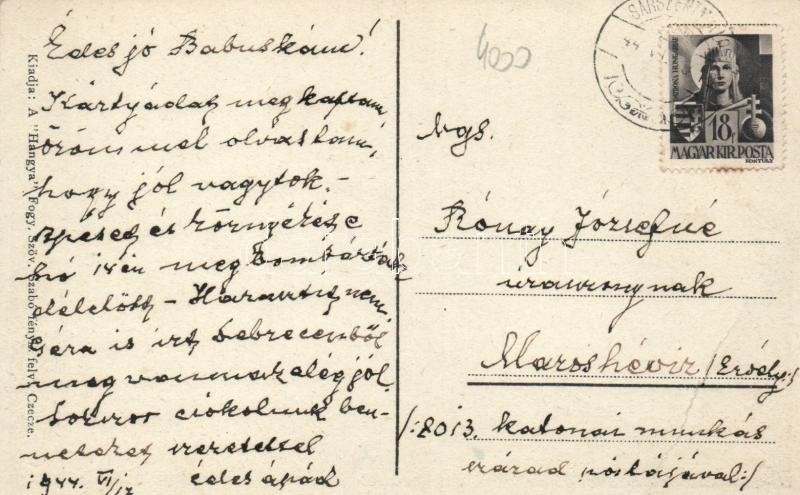 Édes jó Babuskám!
Kártyádat megkaptam,
örömmel olvastam,
hogy jól vagytok.-
és környéke
hó 14én megbombázták
délelőtt – nem.
Géra is irt Debrecenből
meg vannak elég jól
Sokszor csókolunk ben-
neteket szeretettel
1944. VI/17 édesapád
Kiadja: A "Hangya" Fogy. Szöv. Szabó fényk. felv. Czecze.
4000
SÁRSZENT
44
18f
MAGYAR KIR. POSTA
Ngs.
Rónay Józsefné
úrasszonynak
Maroshéviz /Erdély:/
/:2013. katonai munkás
század postájával:/